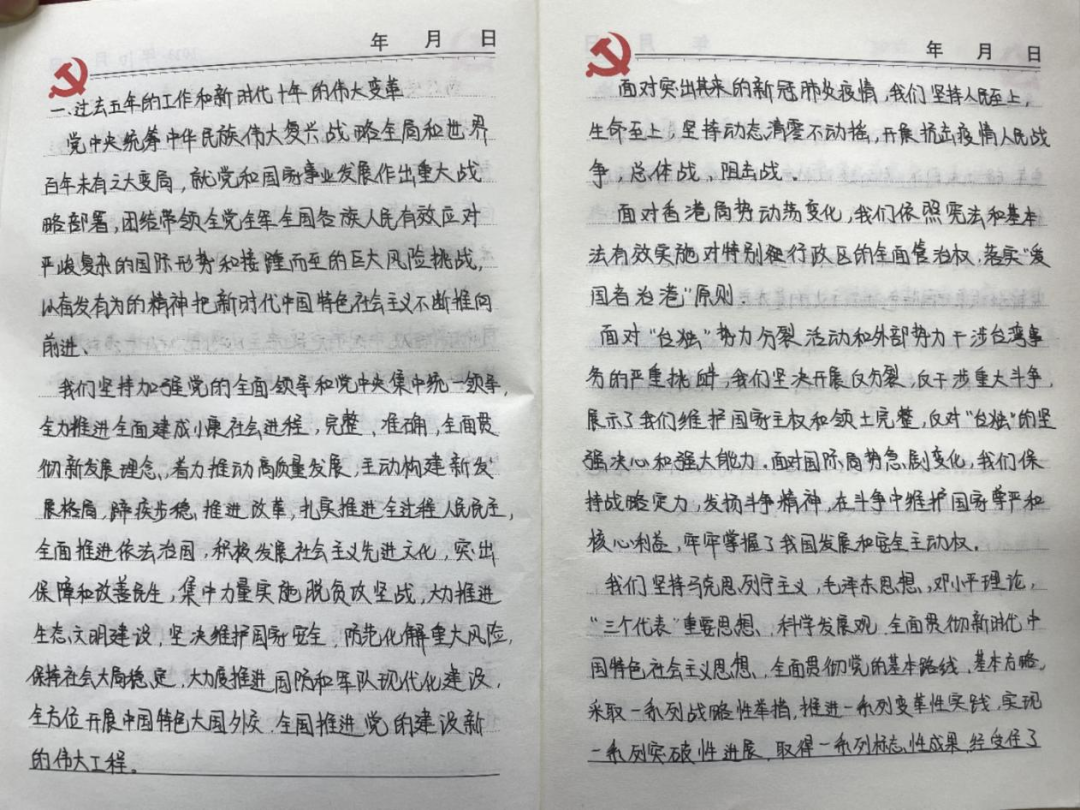 年 月 日
一、过去五年的工作和新时代十年的伟大变革
党中央统筹中华民族伟大复兴战略全局和世界
百年未有之大变局,就党和国家事业发展作出重大战
略部署,团结带领全党全军全国各族人民有效应对
严峻复杂的国际形势和接踵而至的巨大风险挑战,
以奋发有为的精神把新时代中国特色社会主义不断推向
前进、
我们坚持加强党的全面领导和党中央集中统一领导,
全力推进全面建成小康社会进程,完整、准确,全面贯
彻新发展理念,着力推动高质量发展,主动构建新发
展格局,蹄疾步稳、推进改革,扎实推进全过程人民民主,
全面推进依法治国,积极发展社会主义先进文化,突出
保障和改善民生,集中力量实施脱贫攻坚战,大力推进
生态文明建设,坚决维护国家安全,防范化解重大风险,
保持社会大局稳定,大力度推进国防和军队现代化建设,
全方位开展中国特色大国外交、全国推进党的建设新
的伟大工程。
年 月 日
面对突出其来的新冠肺炎疫情,我们坚持人民至上,
生命至上,坚持动态清零不动摇,开展抗击疫情人民战
争,总体战、阻击战.
面对香港局势动荡变化,我们依照宪法和基本
法有效实施对特别行政区的全面管治权,落实“爱
国者治港”原则
面对“台独”势力分裂活动和外部势力干涉台湾事
务的严重挑衅,我们坚决开展反分裂,反干涉重大斗争,
展示了我们维护国家主权和领土完整,反对“台独”的坚
强决心和强大能力.面对国际局势急剧变化,我们保
持战略定力,发扬斗争精神,在斗争中维护国家尊严和
核心利益,牢牢掌握了我国发展和安全主动权.
我们坚持马克思列宁主义,毛泽东思想、邓小平理论,
“三个代表”重要思想、科学发展观、全面贯彻新时代中
国特色社会主义思想、全面贯彻党的基本路线、基本方略,
采取一系列战略性举措,推进一系列变革性实践,实现
一系列突破性进展、取得一系列标志性成果,经受住了